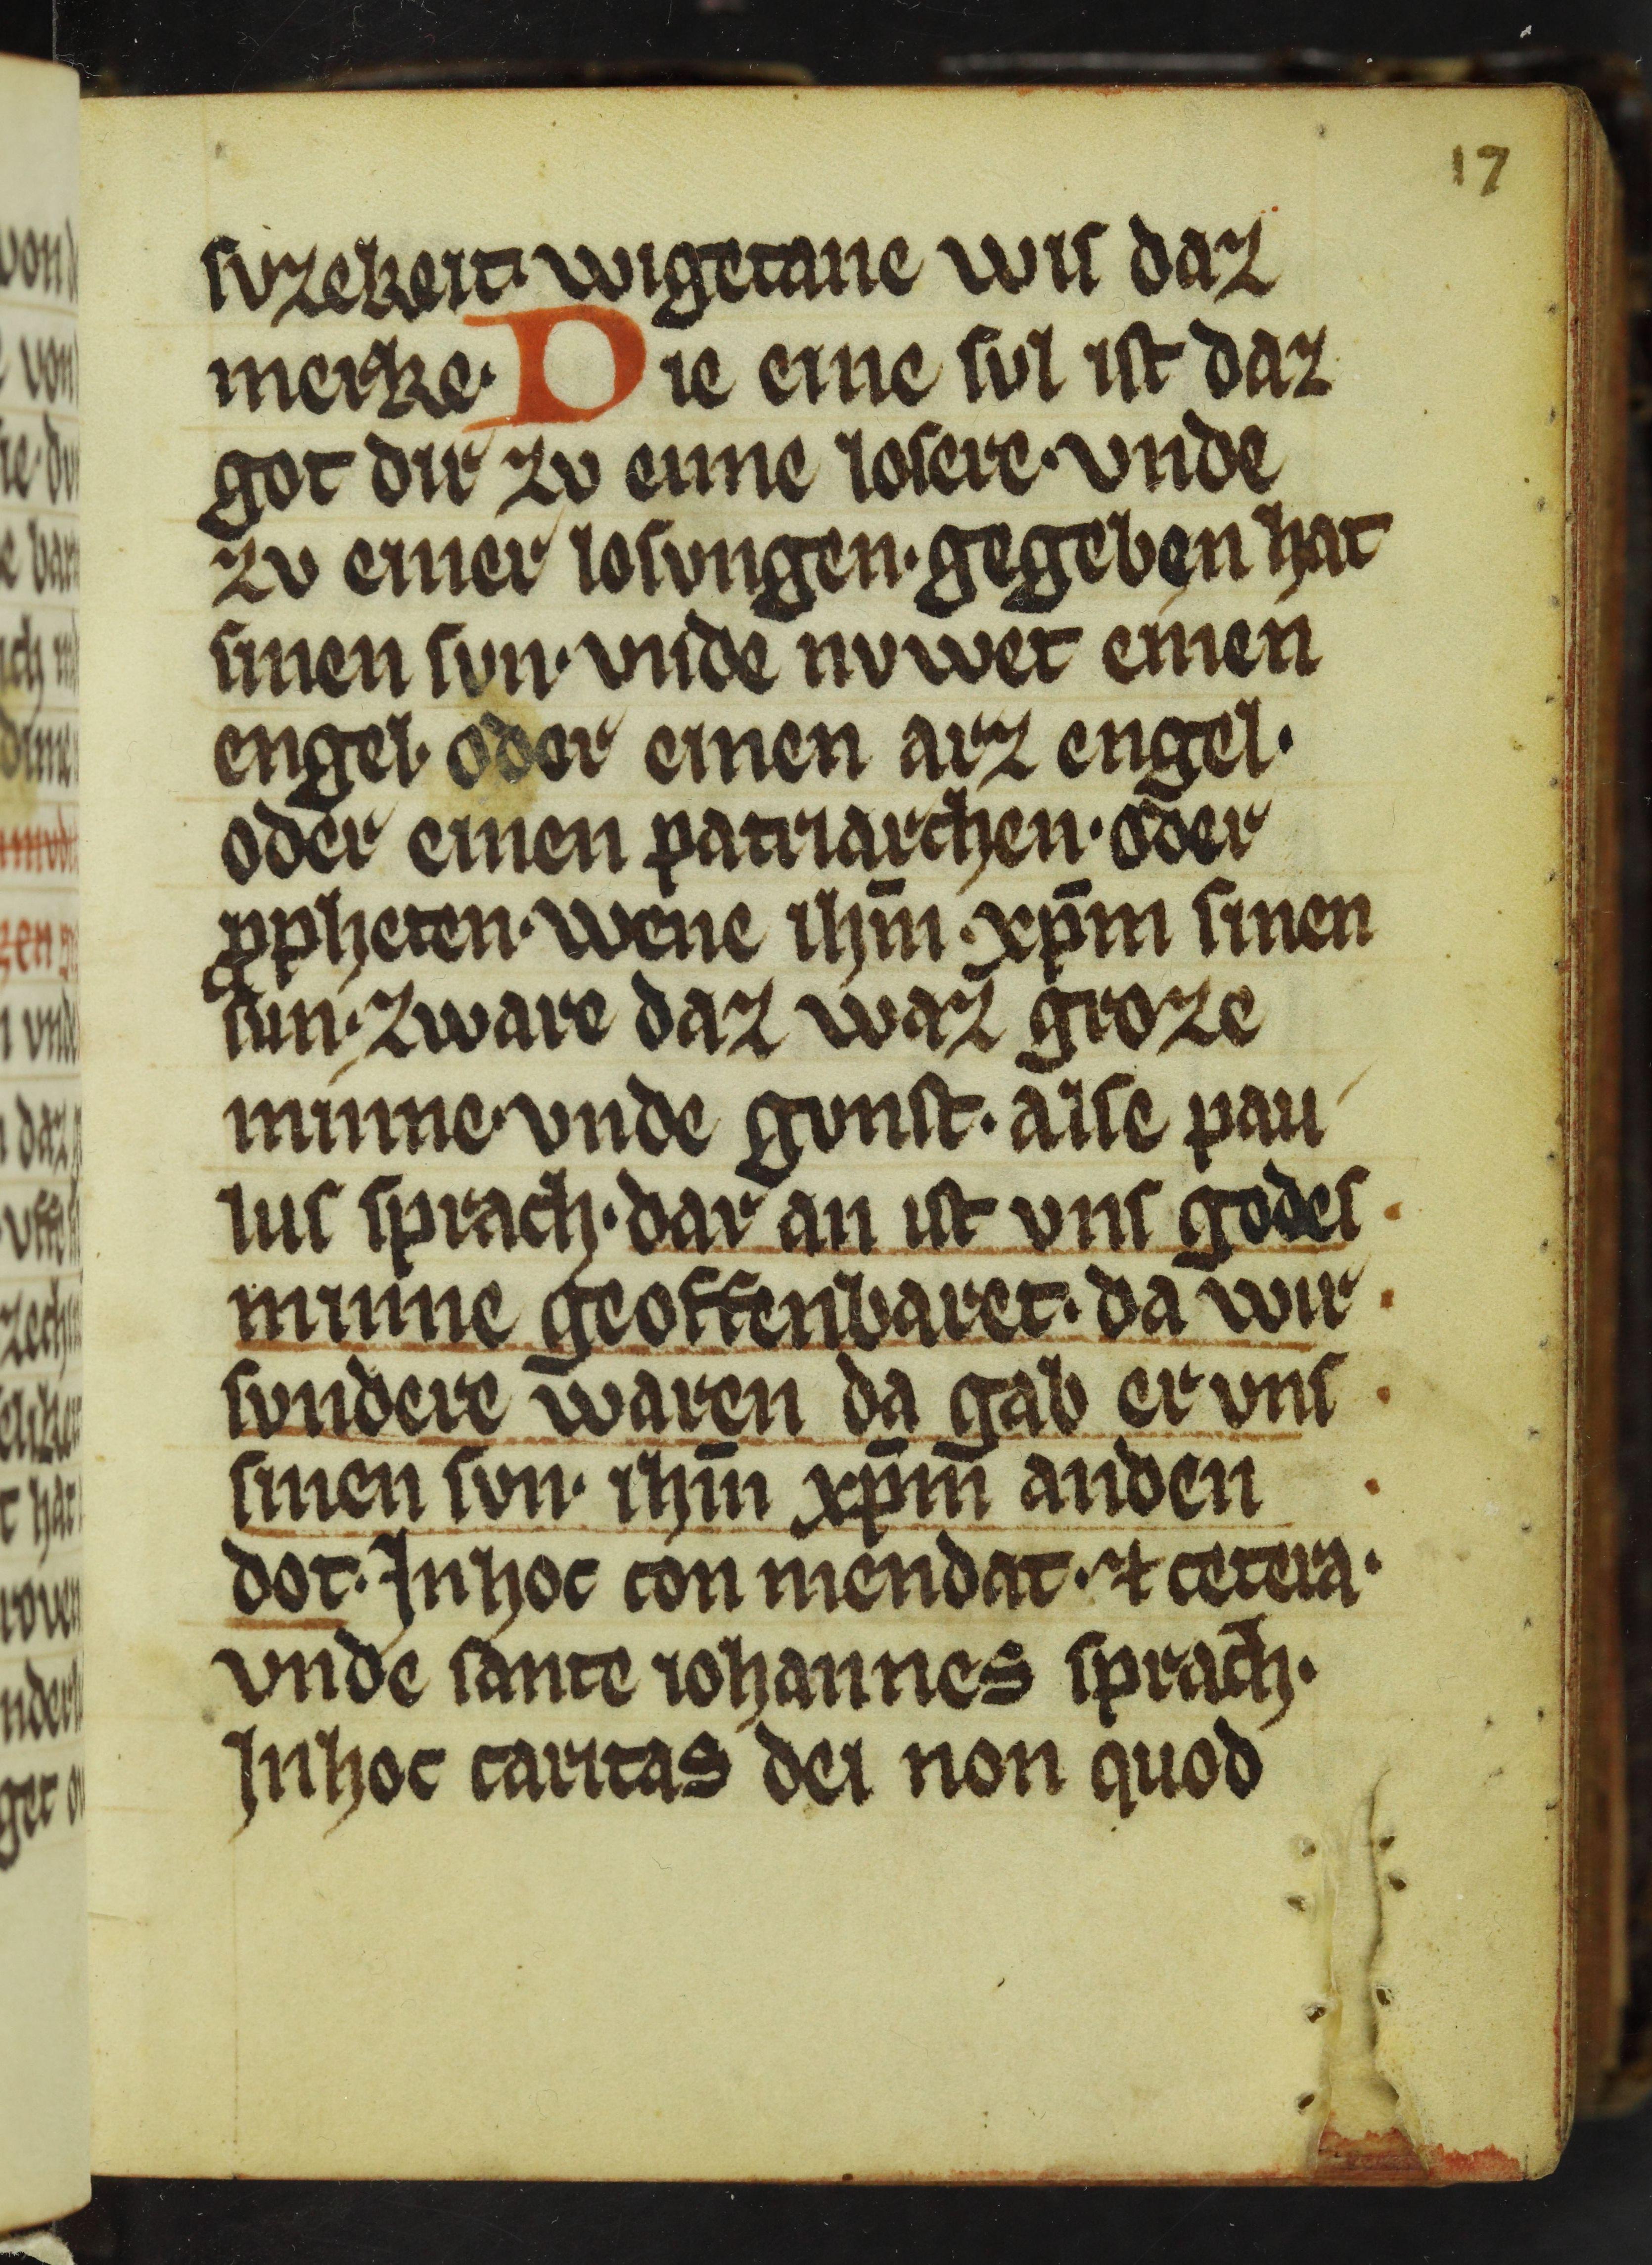 17
svzekeit· wigetane wis daz
merke· Die eine svl ist daz
got dir zv eime losere· vnde
zv einer losvngen· gegeben hat
sinen svn· vnde nv wet einen
engel· oder einen arz engel·
oder einen patriarchen· oder
ꝓpheten· wene ihm̄· xp̄m sinen
sun· zware daz waz groze
minne· vnde gvnst· alse pau
lus sprach· dar an ist vns godes
minne geoffenbaret· da wir
svndere waren da gab er vns
sinen svn· ihm̄ xp̄m anden
dot· Jnhoc con mendat· ⁊ cetera·
vnde sante iohannes sprach·
Jnhoc caritas dei non quod